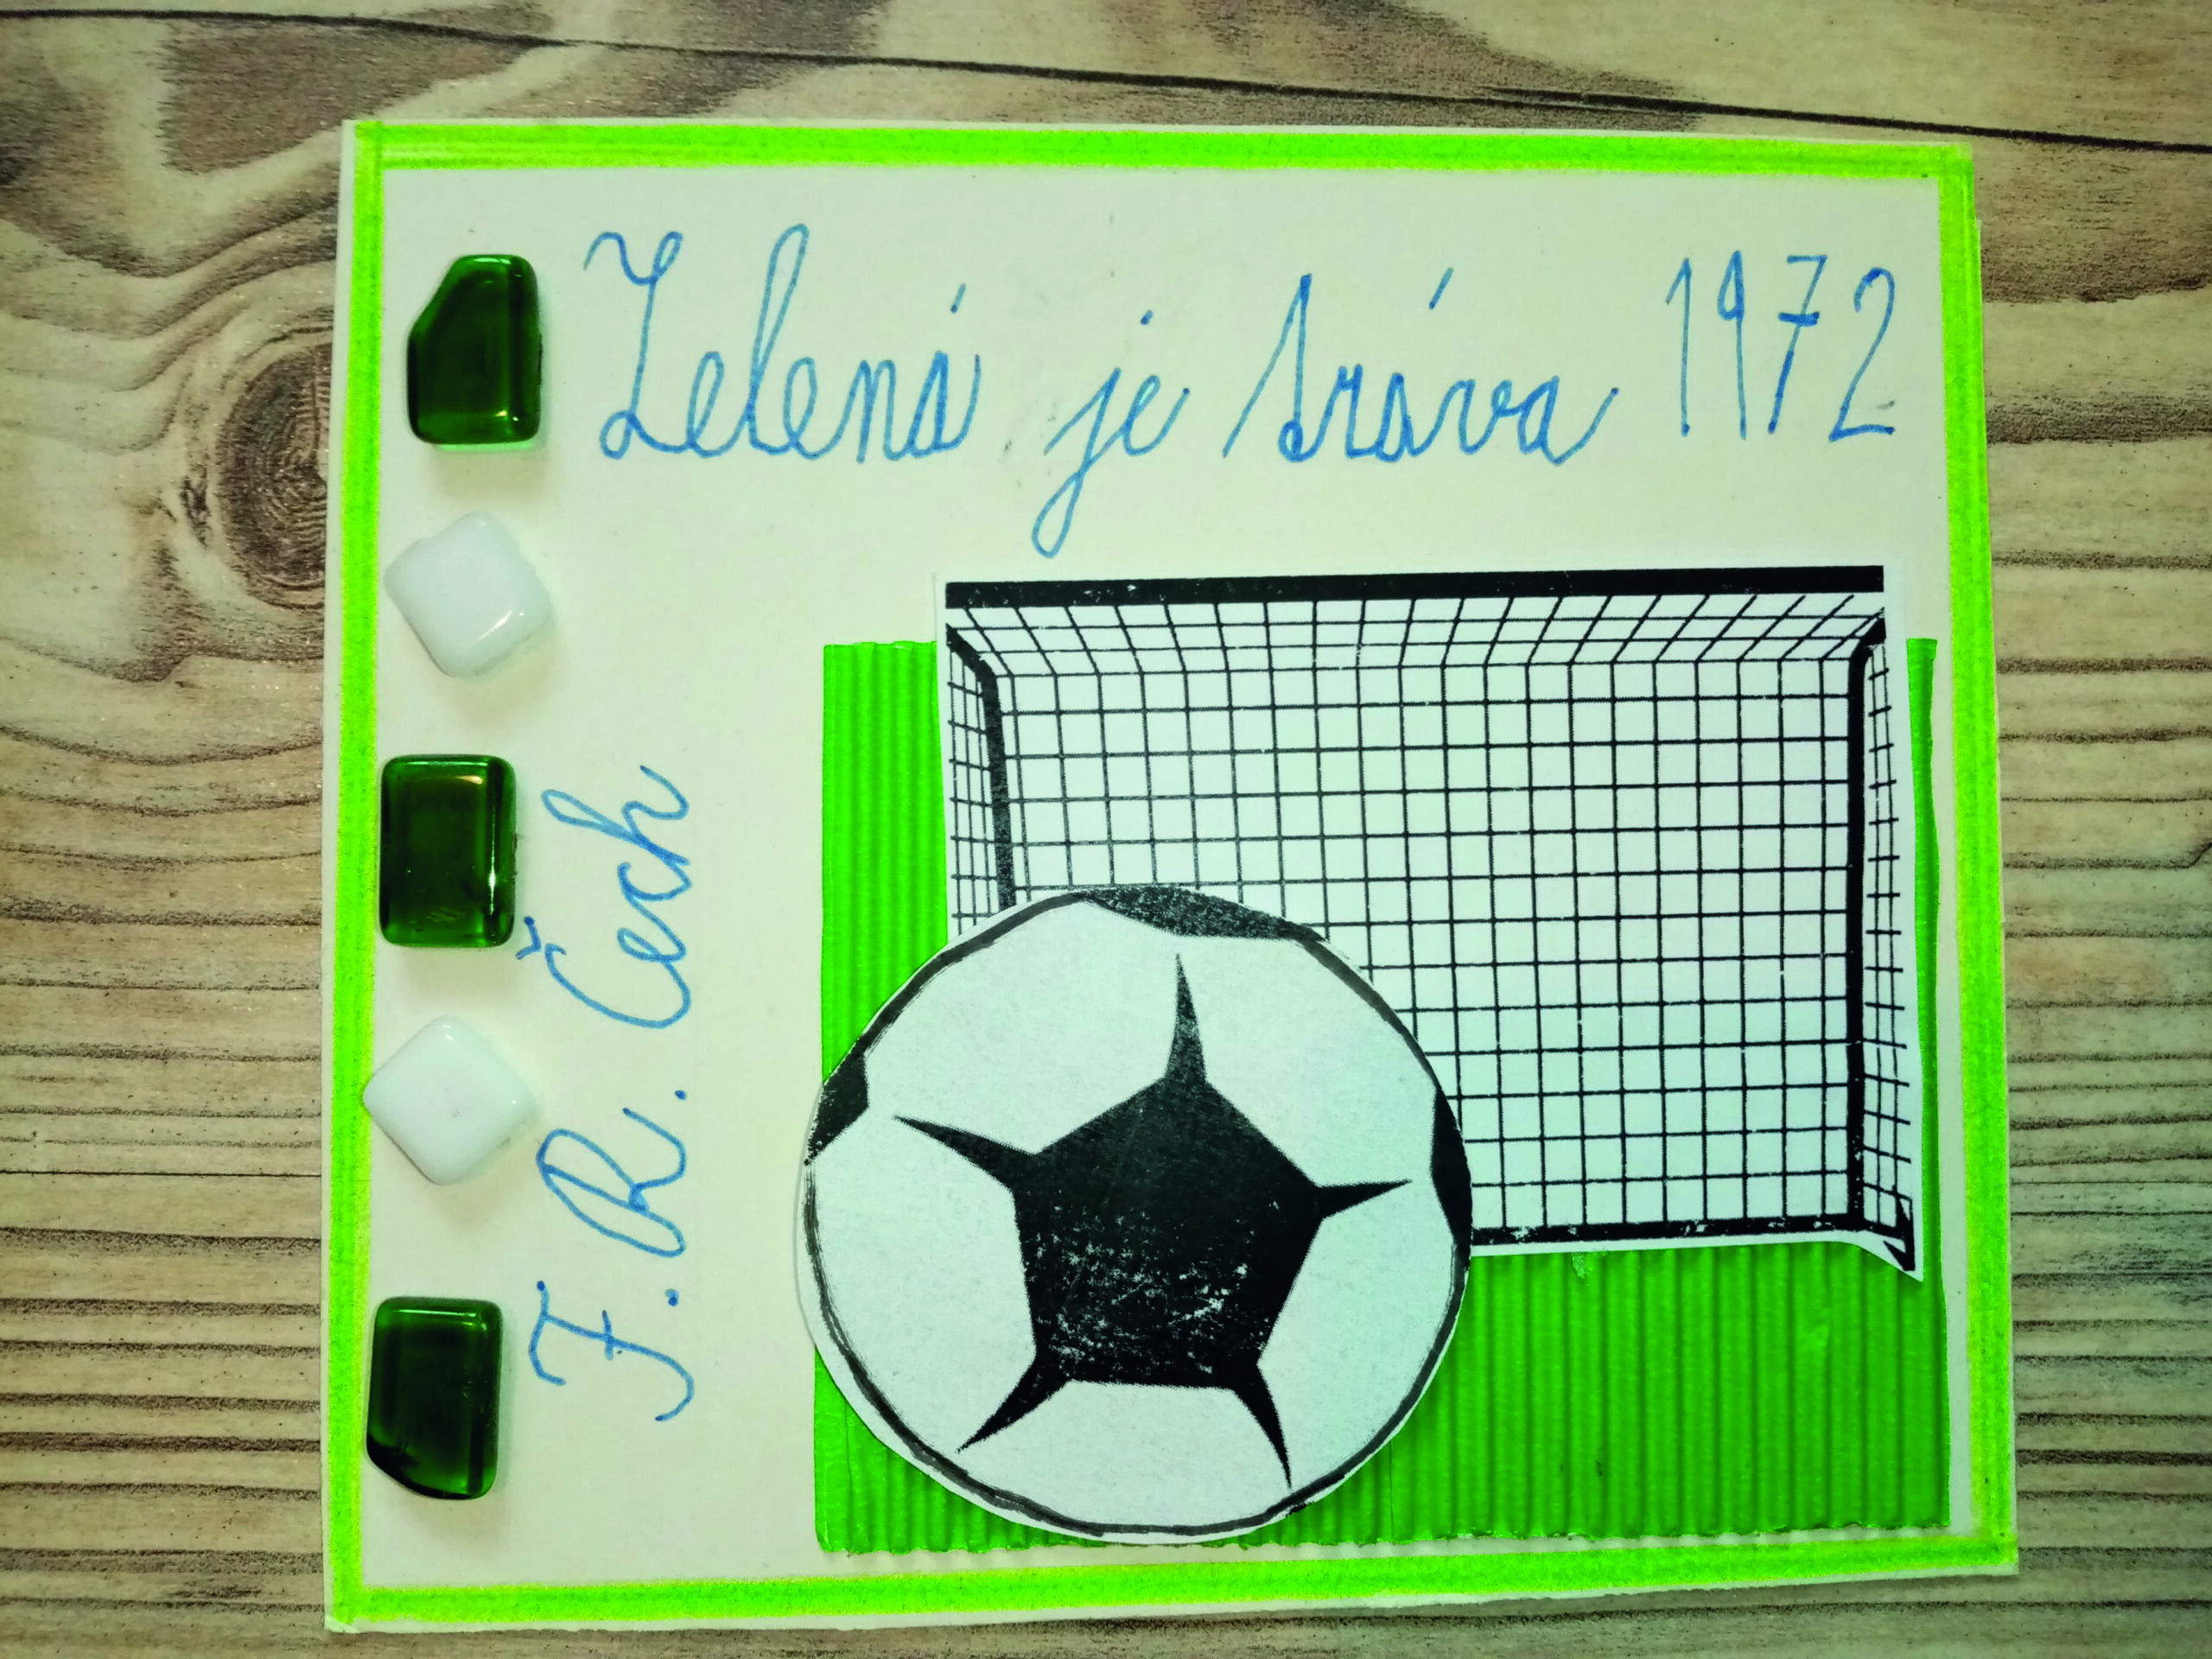 Zelená je tráva 1972
F. R. Čech